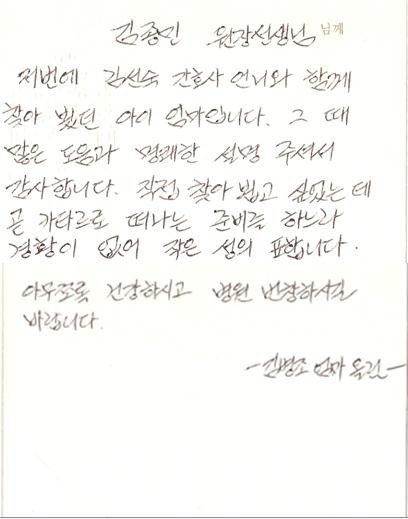 김종민 원장선생님 님께
저번에 김선숙 간호사 언니와 함께
찾아 뵜던 아이 엄마입니다. 그 때
많은 도움과 명쾌한 설명 주셔서
감사합니다. 직접 찾아 뵙고 싶었는데
곧 카타르로 떠나는 준비를 하느라
경황이 없어 작은 성의 표합니다.
아무쪼록 건강하시고 병원 번창하시길
바랍니다.
-김병조 엄마 올림-